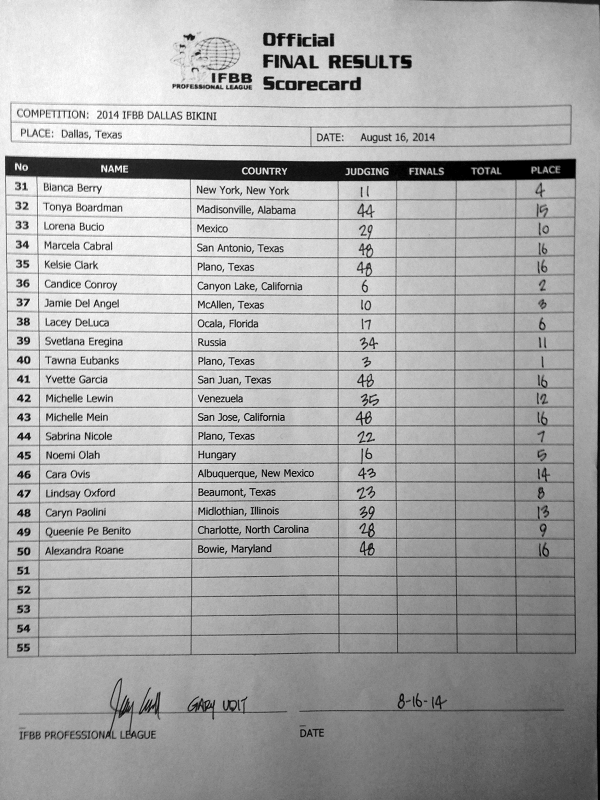 Official
FINAL RESULTS
Scorecard
IFBB
PROFESSIONAL LEAGUE
COMPETITION: 2014 IFBB DALLAS BIKINI
PLACE: Dallas, Texas DATE: August 16, 2014
No NAME COUNTRY JUDGING FINALS TOTAL PLACE
31 Bianca Berry New York, New York 11 4
32 Tonya Boardman Madisonville, Alabama 44 15
33 Lorena Bucio Mexico 29 10
34 Marcela Cabral San Antonio, Texas 48 16
35 Kelsie Clark Plano, Texas 48 16
36 Candice Conroy Canyon Lake, California 6 2
37 Jamie Del Angel McAllen, Texas 10 3
38 Lacey DeLuca Ocala, Florida 17 6
39 Svetlana Eregina Russia 34 11
40 Tawna Eubanks Plano, Texas 3 1
41 Yvette Garcia San Juan, Texas 48 16
42 Michelle Lewin Venezuela 35 12
43 Michelle Mein San Jose, California 48 16
44 Sabrina Nicole Plano, Texas 22 7
45 Noemi Olah Hungary 16 5
46 Cara Ovis Albuquerque, New Mexico 43 14
47 Lindsay Oxford Beaumont, Texas 23 8
48 Caryn Paolini Midlothian, Illinois 39 13
49 Queenie Pe Benito Charlotte, North Carolina 28 9
50 Alexandra Roane Bowie, Maryland 48 16
51
52
53
54
55
GARY UDIT 8-16-14
IFBB PROFESSIONAL LEAGUE DATE